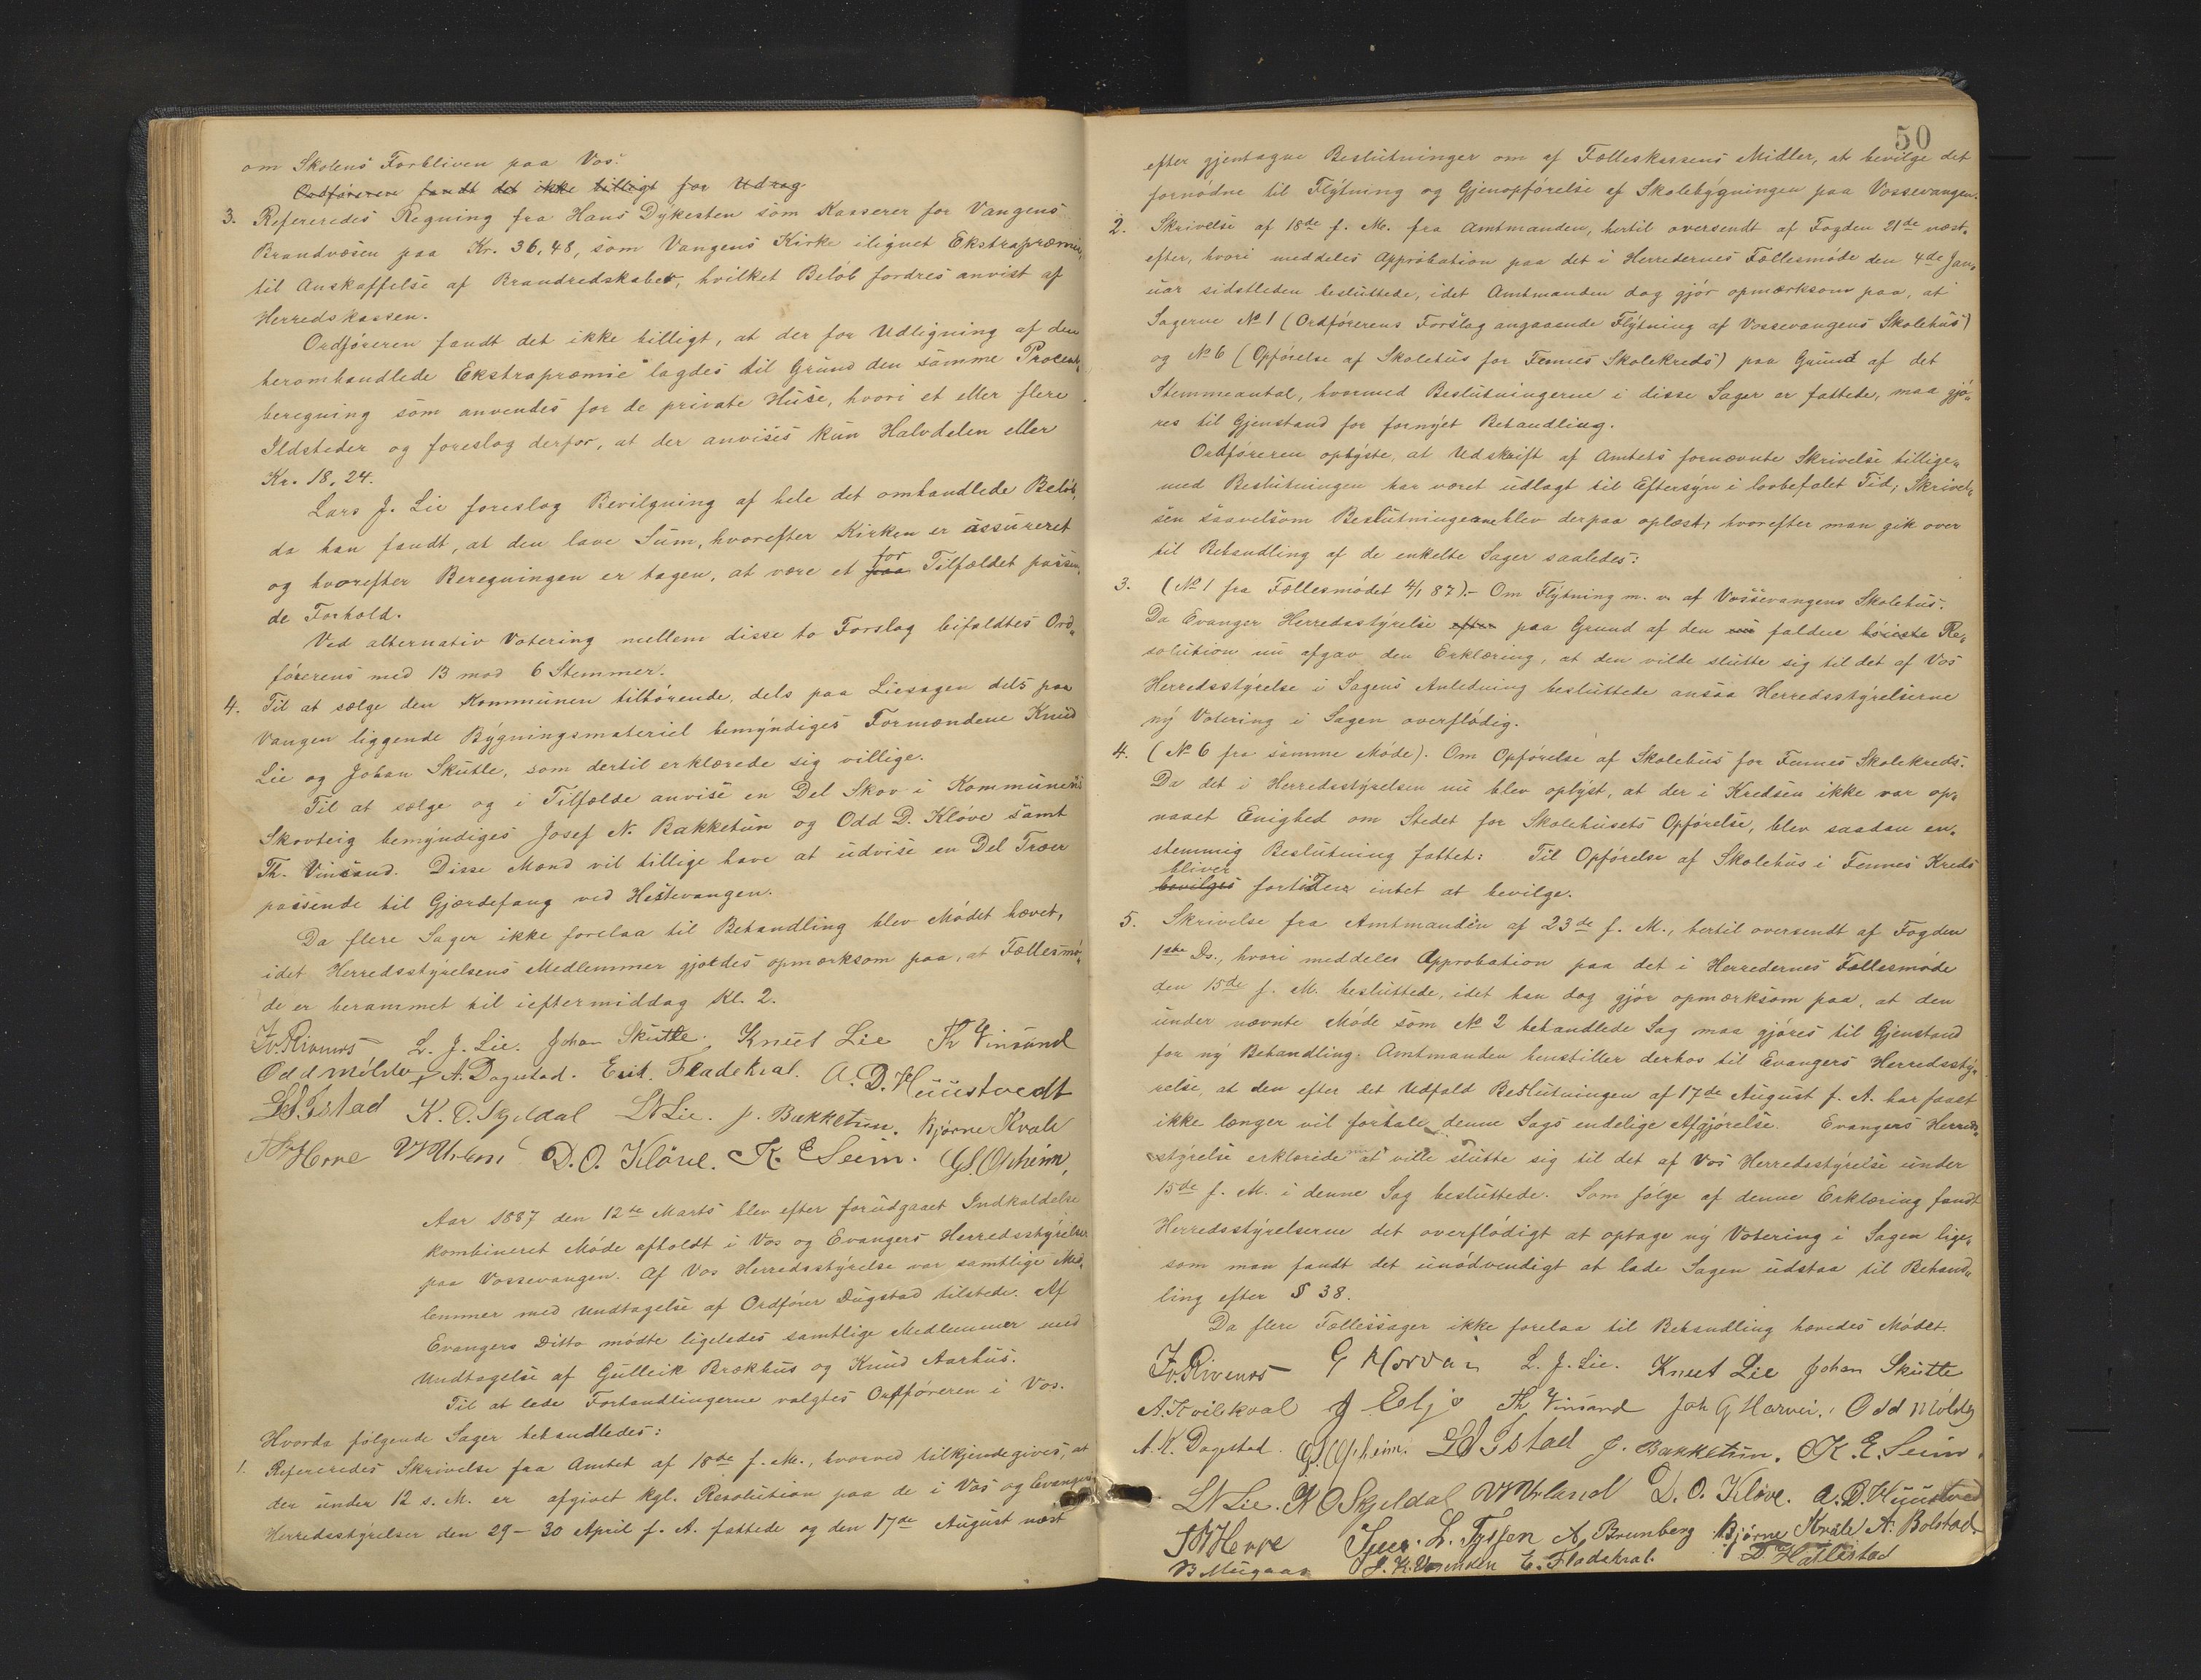 om Skolens Forbliven paa Vos.
Ordföreren fandt det ikke billigt for Udrag.
3. Refereredes Regning fra Hans Dykesten som Kasserer for Vangens
Brandvæsen paa Kr. 36,48, som Vangens Kirke ilignet Ekstrapræmie,
til Anskaffelse af Brandredskaber, hvilket Belöb fordres anvist af
Herredskassen.
Ordföreren fandt det ikke billigt, at der for Udligning af den
heromhandlede Ekstrapræmie lagdes til Grund den samme Procent„
beregning som anvendes for de private Huse, hvori et eller flere
Ildsteder og foreslog derfor, at der anvises kun Halvdelen eller
Kr. 18,24.
Lars J. Lie foreslog Bevilgning af hele det omhandlede Belöb,
da han fandt, at den lave Sum, hvorefter Kirken er assureret
og hvorefter Beregningen er tagen, at være et paa for Tilfældet passen„
de Forhold.
Ved alternativ Votering mellem disse to Forslag bifaldtes Ord„
förerens med 13 mod 6 Stemmer.
4. Til at sælge den Kommunen tilhörende, dels paa Liesagen dels paa
Vangen liggende Bygningsmateriel bemyndiges Formændene Knud
Lie og Johan Skutle, som dertil erklærede sig villige.
Til at sælge og i Tilfælde anvise en Del Skov i Kommunens
Skovteig bemyndiges Josef N. Bakketun og Odd D. Klöve samt
Th. Vinsand. Disse Mænd vil tillige have at udvise en Del Træer
passende til Gjærdefang ved Hestevangen.
Da flere Sager ikke forelaa til Behandling blev Mödet hævet,
idet Herredsstyrelsens Medlemmer gjordes opmærksom paa, at Fællesmö„
de er berammet til ieftermiddag Kl. 2.
Iv. Rivenes L. J. Lie. Johan Skutle. Knut Lie Th Vinsand
Odd Mölster A. Dagestad. Erik Fladekval. A. D. Huustvedt
Istad K. O. Skjeldal LN Lie. J. Bakketun. Björne Kvale
Herre D. O. Klöve. K. E Seim. G.S. Opheim,
Aar 1887 den 12te Marts blev efter forudgaaet Indkaldelse
kombineret Möde afholdt i Vos og Evangers Herredsstyrelser
paa Vossevangen. Af Vos Herredsstyrelse var samtlige Med„
lemmer med Undtagelse af Ordförer Dugstad tilstede. Af
Evangers Ditto mödte ligeledes samtlige Medlemmer med
Undtagelse af Gulleik Brækhus og Knud Aarhus.
Til at lede Forhandlingerne valgtes Ordföreren i Vos.
Hvorda fölgende Sager behandledes:
1. Refereredes Skrivelse fra Amtet af 18de f. M., hvorved tilkjendegives, at
der under 12 s. M. er afgivet kgl. Resolution paa de i Vos og Evangers
Herredsstyrelser den 29 – 30 April f. A. fattede og den 17de August næst
50
efter gjentagne Beslutninger om af Fælleskassens Midler, at bevilge det
fornödne til Flytning og Gjenopförelse af Skolebygningen paa Vossevangen.
2. Skrivelse af 18de f. M. fra Amtmanden, hertil oversendt af Fogden 21de næst„
efter, hvori meddeles Approbation paa det i Herredernes Fællesmöde den 4de Jan„
uar sidstleden besluttede, idet Amtmanden dog gjör opmærksom paa, at
Sagerne No 1 (Ordförerens Forslag angaaende Flytning af Vossevangens Skolehus)
og No 6 (Opförelse af Skolehus for Fennes Skolekreds) paa Grund af det
Stemmeantal, hvormed Beslutningerne i disse Sager er fattede, maa gjö„
res til Gjenstand for fornyet Behandling.
Ordföreren oplyste, at Udskrift af Amtets fornævnte Skrivelse tillige„
med Beslutningen har været udlagt til Eftersyn i lovbefalet Tid; Skrivel„
sen saavelsom Beslutningerne blev derpaa oplæst, hvorefter man gik over
til Behandling af de enkelte Sager saaledes:
3. (No 1 fra Fællesmödet 4/1 87). – Om Flytning m. v. af Vossevangens Skolehus.
Da Evanger Herredsstyrelse efter paa Grund af den nu faldne höieste Re„
solution nu afgav den Erklæring, at den vilde slutte sig til det af Vos
Herredsstyrelse i Sagens Anledning besluttede ansaa Herredsstyrelserne
ny Votering i Sagen overflödig.
4. (No 6 fra samme Möde). Om Opförelse af Skolehus for Fennes Skolekreds.
Da det i Herredsstyrelsen nu blev oplyst, at der i Kredsen ikke var op„
naaet Enighed om Stedet for Skolehusets Opförelse, blev saadan en„
stemmig Beslutning fattet: Til Opförelse af Skolehus i Fennes Kreds
bliver
bevilges fortiden intet at bevilge.
5. Skrivelse fra Amtmanden af 23de f. M., hertil oversendt af Fogden
1ste Ds., hvori meddeles Approbation paa det i Herredernes Fællesmöde
den 15de f. M. besluttede, idet han dog gjör opmærksom paa, at den
under nævnte Möde som No 2 behandlede Sag maa gjöres til Gjenstand
for ny Behandling. Amtmanden henstiller derhos til Evangers Herredssty„
relse, at den efter det Udfald Beslutningen af 17de August f. A. har faaet
ikke længer vil forhale denne Sags endelige Afgjörelse. Evangers Herreds„
styrelse erklærede at ville slutte sig til det af Vos Herredsstyrelse under
15de f. M. i denne Sag besluttede. Som fölge af denne Erklæring fandt
Herredsstyrelserne det overflödigt at optage ny Votering i Sagen lige„
som man fandt det unödvendigt at lade Sagen udstaa til Behand„
ling efter § 38.
Da flere Fællessager ikke forelaa til Behandling hævedes Mödet.
Iv. Rivenes G Horvei L. J. Lie. Knut Lie Johan Skutle
A. Kvilekval J Eljo Th Vinsand Joh G Horvei. Odd Mölster
A. K. Dagestad. G.S. Opheim. Istad J. Bakketun. K. E. Seim.
LN Lie. K O Skjeldal D. O. Klöve. A. D. Huustved
Herre L. Tyssen A. Brunberg Björne Kvale A. Bolstad
B Mugaas E. Fladekval. D. Hallestad